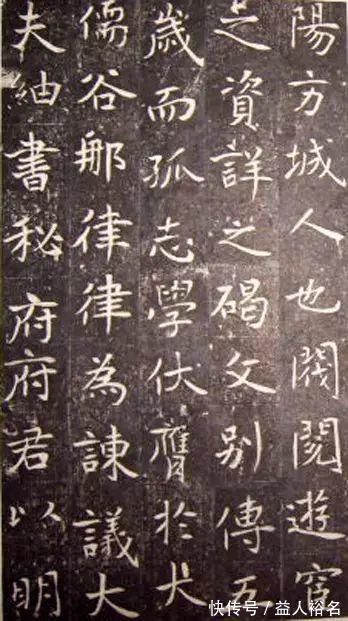 陽方城人也閥閱遊宦
之資詳之碣文別傳五
歲而孤志學伏膺於大
儒谷那律律為諫議大
夫紬書秘府府君以明
快传号/益人裕名